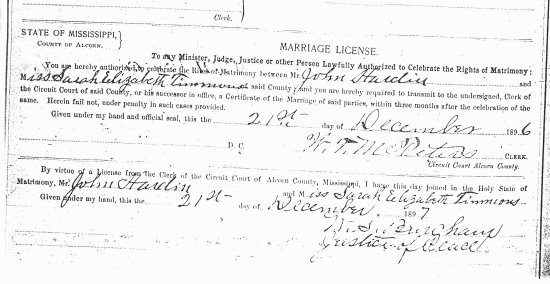 Clerk.
STATE OF MISSISSIPPI,
COUNTY OF ALCORN.
MARRIAGE LICENSE.
To any Minister, Judge, Justice or other Person Lawfully Authorized to Celebrate the Rights of Matrimony:
You are hereby authorized to celebrate the Rites of Matrimony between Mr. John Hardin and
Miss Sarah Elizabeth Timmons of said County and you are hereby required to transmit to the undersigned, Clerk of
the Circuit Court of said County, or his successor in office, a Certificate of the Marriage of said parties, within three months after the celebration of the
same. Herein fail not, under penalty in such cases provided.
Given under my hand and official seal, this the 21st day of December 1896
W. T. McPeters CLERK.
D. C.
Circuit Court Alcorn County.
By virtue of a License from the Clerk of the Circuit Court of Alcorn County, Mississippi, I have this day joined in the Holy State of
Matrimony, Mr. John Hardin and Miss Sarah Elizabeth Timmons
Given under my hand, this the 21st day of December 1897
Justice of Peace